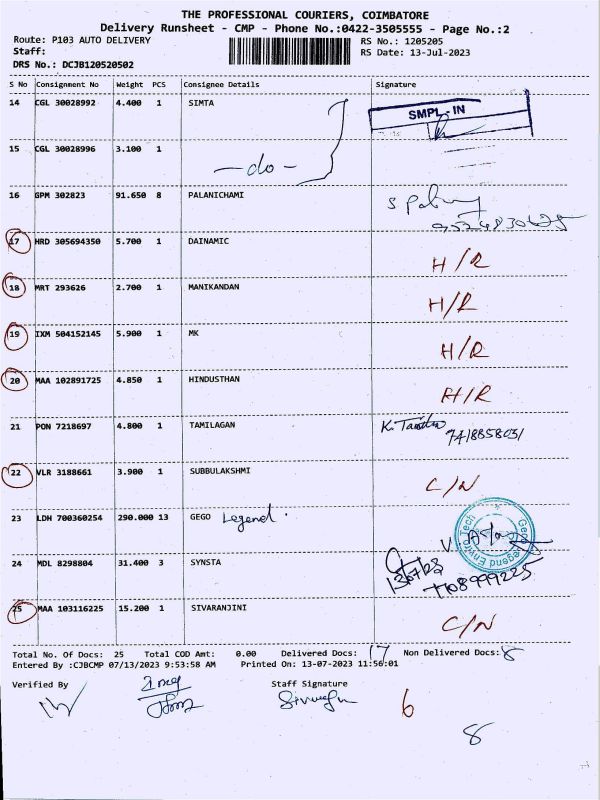 THE PROFESSIONAL COURIERS, COIMBATORE
Delivery Runsheet - CMP - Phone No.:0422-3505555 - Page No.:2
Route: P103 AUTO DELIVERY RS No.: 1205205
Staff: RS Date: 13-Jul-2023
DRS No.: DCJB120520502
S No Consignment No Weight PCS Consignee Details Signature
14 CGL 30028992 4.400 1 SIMTA SMPL - IN
15 CGL 30028996 3.100 1 - do -
16 GPM 302823 91.650 8 PALANICHAMI
17 HRD 305694350 5.700 1 DAINAMIC H/R
18 MRT 293626 2.700 1 MANIKANDAN H/R
19 IXM 504152145 5.900 1 MK H/R
20 MAA 102891725 4.850 1 HINDUSTHAN H/R
21 PON 7218697 4.800 1 TAMILAGAN
7418858031
22 VLR 3188661 3.900 1 SUBBULAKSHMI C/N
23 LDH 700360254 290.000 13 GEGO Legend.
24 MDL 8298804 31.400 3 SYNSTA
13/07/23
25 MAA 103116225 15.200 1 SIVARANJINI C/N
Total No. Of Docs: 25 Total COD Amt: 0.00 Delivered Docs: 17 Non Delivered Docs: 8
Entered By :CJBCMP 07/13/2023 9:53:58 AM Printed On: 13-07-2023 11:56:01
Verified By Staff Signature
6
8